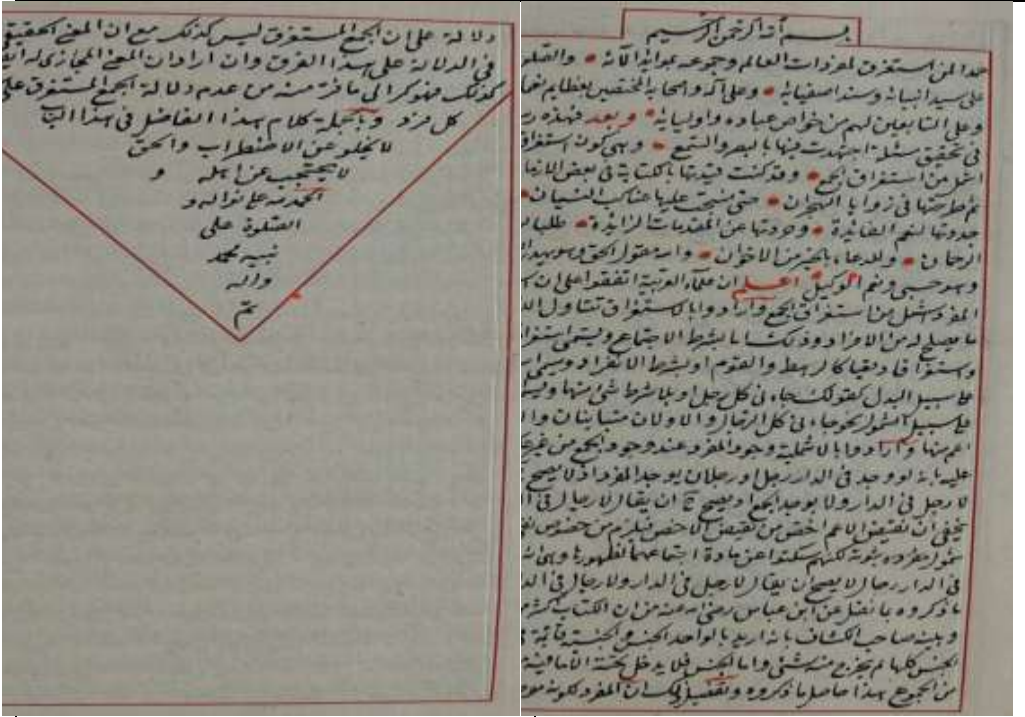 بسم الله الرحمن الرحيم
حمدا لمن استغرق لمفردات العالم وجموعه عوائد آلائه والصلو
على سيد انبيائه وسند اصفيائه وعلى آله واصحابه المختصين بعظايم نعما
وعلى التابعين لهم من خواص عباده واوليائه وبعد فهذه ر
في تحقيق مسئلة اجتهدت فيها بالبصر والسمع وهى كون استغراق
اشمل من استغراق الجمع وقد كنت قيدتها بالكتابة فى بعض الازما
ثم طرحتها فى زوايا الهجران حتى نسجت عليها عناكب النسيان
جددتها لنعم الفائدة وجردتها عن المقدمات الزائدة طلبا
الرحمان وللدعاء بالخير من الاخوان والله يقول الحق وهو يهدى
وهو حسبى ونعم الوكيل اعلم ان علماء العربية اتفقوا على ان
المفرد اشمل من استغراق الجمع وارادوا بالاستغراق تناول
ما يصلح له من الافراد وذلك اما بشرط الاجتماع ويسمى استغرا
واستغراقا كالرهط والقوم او بشرط الانفراد ويسمى
على سبيل البدل كقولك جاءنى كل رجل او بلا شرط شئ منهما
على سبيل الشمول نحو جاءنى كل الرجال والاولان متباينان وا
اعم منهما وارادوا بالاشملية وجود المفرد عند وجود الجمع من غير
عليه بانه لو وجد فى الدار رجل او رجلان يوجد المفرد اذ لا يصح
لا رجل فى الدار ولا يوجد الجمع اذ يصح ح ان يقال لا رجال فى ا
يخفى ان نقيض الاعم اخص من نقيض الاخص فيلزم من خصوص
شمول مفرده ثبوته لكنهم سكتوا عن مادة اجتماعهما لظهورها وهى
فى الدار رجال لا يصح ان يقال لا رجل فى الدار ولا رجال فى الد
ما ذكروه بما نقل عن ابن عباس رضى الله عنه من ان الكتاب اكثر
وبينه صاحب الكشاف بانه اريد بالواحد الجنس والجنسية قائمة
الجنس كلها لم يخرج منه شئ واما الجمع فلا يدخل تحته الا ما فيه
من الجموع هذا حاصل ما ذكروه وتفصيل ذلك ان المفرد لكونه
دلالة على ان الجمع المستغرق ليس كذلك مع ان المعنى الحقيقى
فى الدلالة على هذا الفرق وان اراد ان المعنى المجازى له
كذلك فهو كر الى ما فر منه من عدم دلالة الجمع المستغرق على
كل فرد وبالجملة كلام هذا الفاضل فى هذا البا
لا يخلو عن الاضطراب والحق
لا يحتجب عن اهله و
الحمد لله على نواله و
الصلوة على
نبيه محمد
واله
تم